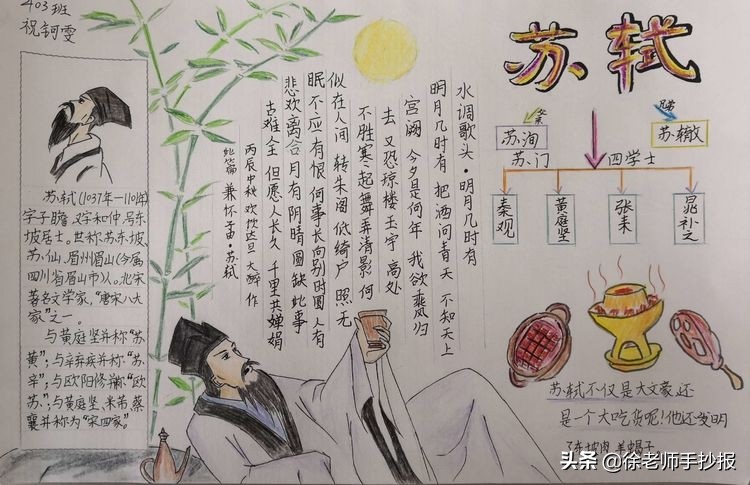 403班
祝钶雯
苏轼(1037年—1101年)
字子瞻 又字和仲,号东
坡居士。世称苏东坡、
苏仙,眉州眉山(今属
四川省眉山市)人。北宋
著名文学家,“唐宋八大
家”之一。
与黄庭坚并称“苏
黄”;与辛弃疾并称“苏
辛”;与欧阳修并称“欧
苏”;与黄庭坚、米芾、蔡
襄并称为“宋四家”。
水调歌头·明月几时有
明月几时有 把酒问青天 不知天上
宫阙 今夕是何年 我欲乘风归
去 又恐琼楼玉宇 高处
不胜寒 起舞弄清影 何
似在人间 转朱阁 低绮户 照无
眠 不应有恨 何事长向别时圆 人有
悲欢离合 月有阴晴圆缺 此事
古难全 但愿人长久 千里共婵娟
丙辰中秋 欢饮达旦 大醉 作
此篇 兼怀子由·苏轼
苏轼
父亲
兄弟
苏洵
苏辙
苏门 四学士
秦观
黄庭坚
张耒
晁补之
苏轼不仅是大文豪,还
是一个大吃货呢!他还发明
了东坡肉、羊蝎子
头条 @徐老师手抄报